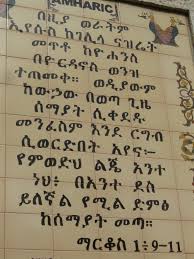 AMHARIC
በዚያ ወራትም
ኢየሱስ ከገሊላ ናዝሬት
መጥቶ ከዮሐንስ
በዮርዳኖስ ወንዝ
ተጠመቀ። ወዲያውም
ከውኃው በወጣ ጊዜ
ሰማያት ሲቀደዱ
መንፈስም እንደ ርግብ
ሲወርድበት አየና፦
የምወድህ ልጄ አንተ
ነህ፥ በአንተ ደስ
ይለኛል የሚል ድምፅ
ከሰማያት መጣ።
ማርቆስ 1፥9-11